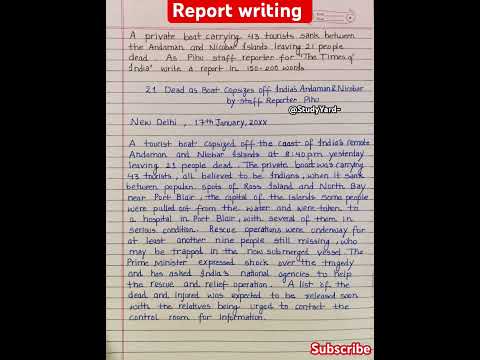 Report writing
A private boat carrying 43 tourists sank between
the Andaman and Nicobar Islands leaving 21 people
dead. As Pihu staff reporter for "The Times of
India" write a report in 150-200 words
21 Dead as Boat Capsizes off India's Andaman & Nicobar
by Staff Reporter Pihu
@StudyYard-
New Delhi, 17th January, 20XX
A tourist boat capsized off the coast of India's remote
Andaman and Nicobar Islands at 8:40 pm yesterday
leaving 21 people dead. The private boat was carrying
43 tourists, all believed to be Indians, when it sank
between popular spots of Ross Island and North Bay
near Port Blair, the capital of the islands some people
were pulled out from the water and were taken to
a hospital in Port Blair, with several of them in
serious condition. Rescue operations were underway for
at least another nine people still missing, who
may be trapped in the now submerged vessel. The
Prime minister expressed shock over the tragedy
and has asked India's national agencies to help
the rescue and relief operation. A list of the
dead and injured was expected to be released soon
with the relatives being urged to contact the
control room for information.
Subscribe